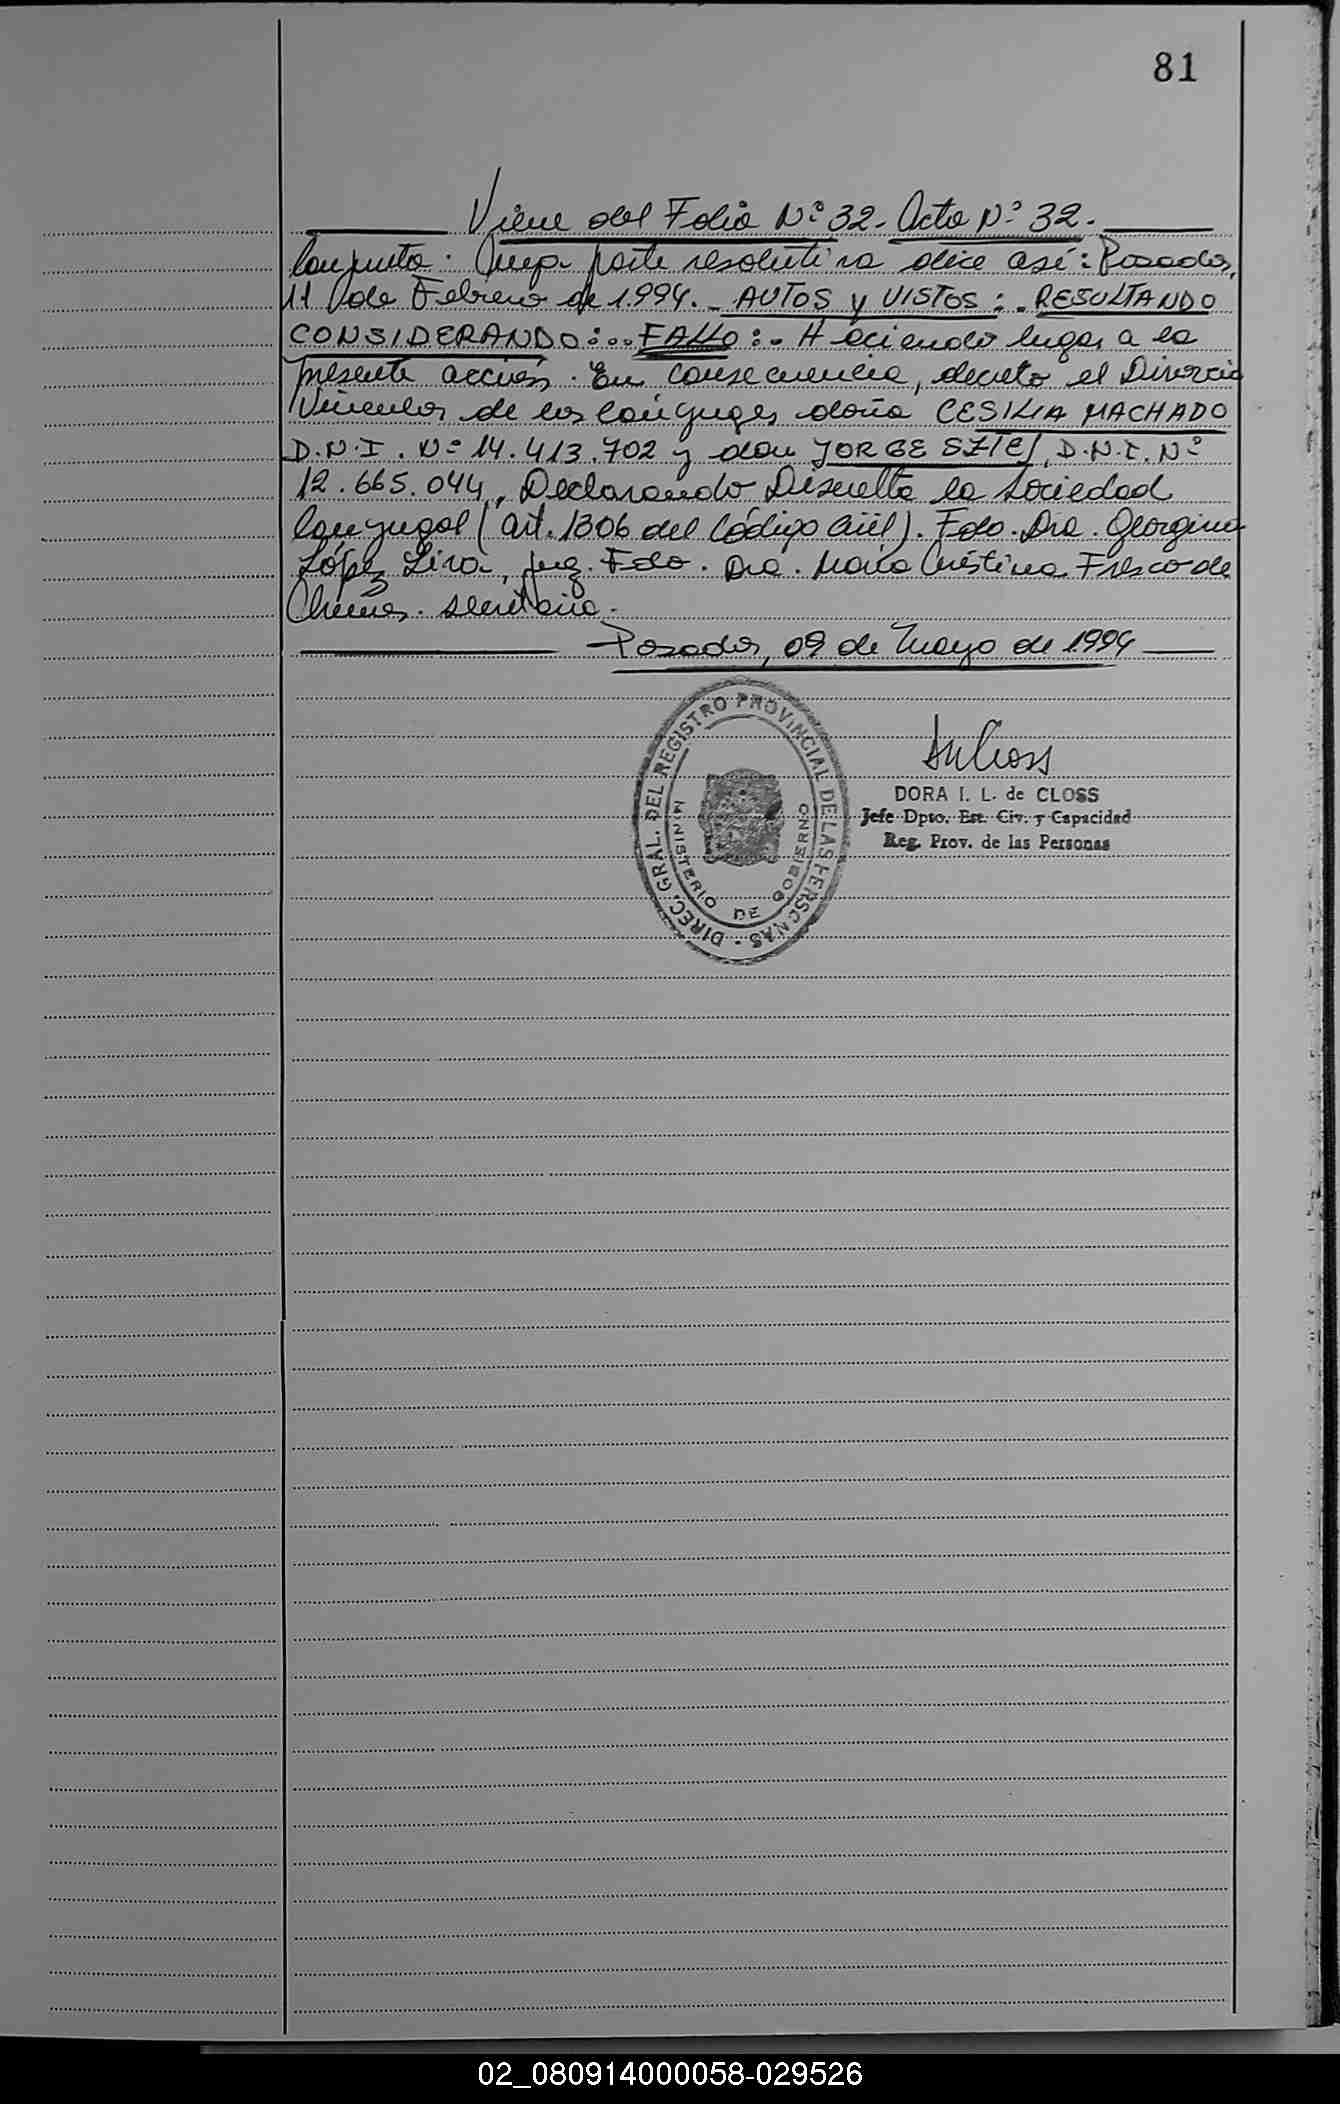 81
Viene del Folio Nº 32. Acta Nº 32.
Conjunta. Cuya parte resolutiva dice así: Posadas,
11 de Febrero de 1.994. AUTOS y VISTOS: . RESULTANDO
CONSIDERANDO:... FALLO: . Haciendo lugar a la
presente acción. En consecuencia, decreto el Divorcio
Vincular de los cónyuges doña CESILIA MACHADO
D.N.I. Nº 14.413.702 y don JORGE SZTEJ, D.N.I. Nº
12.665.044, Declarando Disuelta la Sociedad
Conyugal (art. 1306 del Código Civil). Fdo. Dra. Georgina
López Lira, Juez. Fdo. Dra. María Cristina Fresco de
secretaria.
Posadas, 09 de Mayo de 1994
DIREC. GRAL. DEL REGISTRO PROVINCIAL DE LAS PERSONAS -
MINISTERIO DE GOBIERNO
DORA I. L. de CLOSS
Jefe Dpto. Est. Civ. y Capacidad
Reg. Prov. de las Personas
02_080914000058-029526